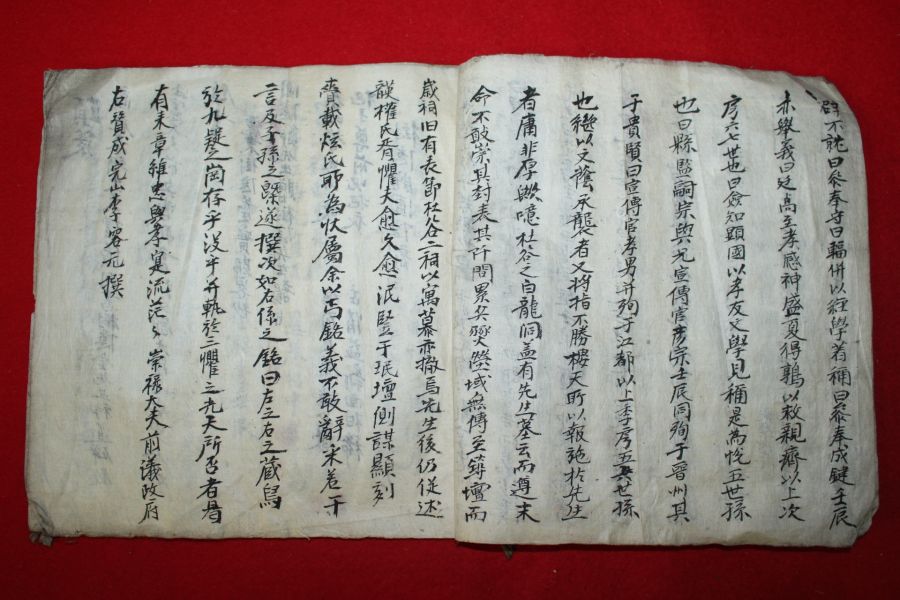 辟不就曰參奉守曰輻併以經學著稱曰參奉成鍵壬辰
赤擧義曰廷高至孝感神盛夏得鶉以救親癠以上次
房六七世也曰僉知顯國以孝友文學見稱是為悅五世孫
也曰縣監嗣宗與兄宣傳官彦宗壬辰同殉于晋州其
子貴賢曰宣傳官孝男并殉于江都以上季房五六世孫
也繼以文蔭承襲者又將指不勝樓天所以報施於先生
者庸非厚歟噫杜谷之白龍洞盖有先生墓云而遵末
命不敢崇其封表其阡閱累矣塋域無傳至築壇而
歲祠旧有表節杜谷二祠以寓慕亦撤焉先生後仍促述
謨權氏胥懼夫愈久愈泯竪于珉壇側謀顯刻
賫載炫氏耶為狀屬余以考銘義不敢辭宋若干
言及子孫之槩遂撰次如右係之銘曰左三右之蔵烏
於九疑之崗存乎没乎并執於三懼三先天所否者昌
有未章雖忠與孝寔流茫々 崇祿大夫前議政府
右贊成完山李容元撰